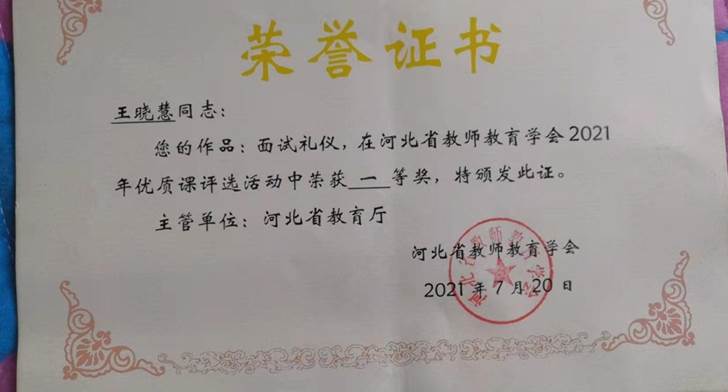 荣誉证书
王晓慧同志：
您的作品：面试礼仪，在河北省教师教育学会2021
年优质课评选活动中荣获一等奖，特颁发此证。
主管单位：河北省教育厅
河北省教师教育学会
2021年7月20日
河北省教师教育学会